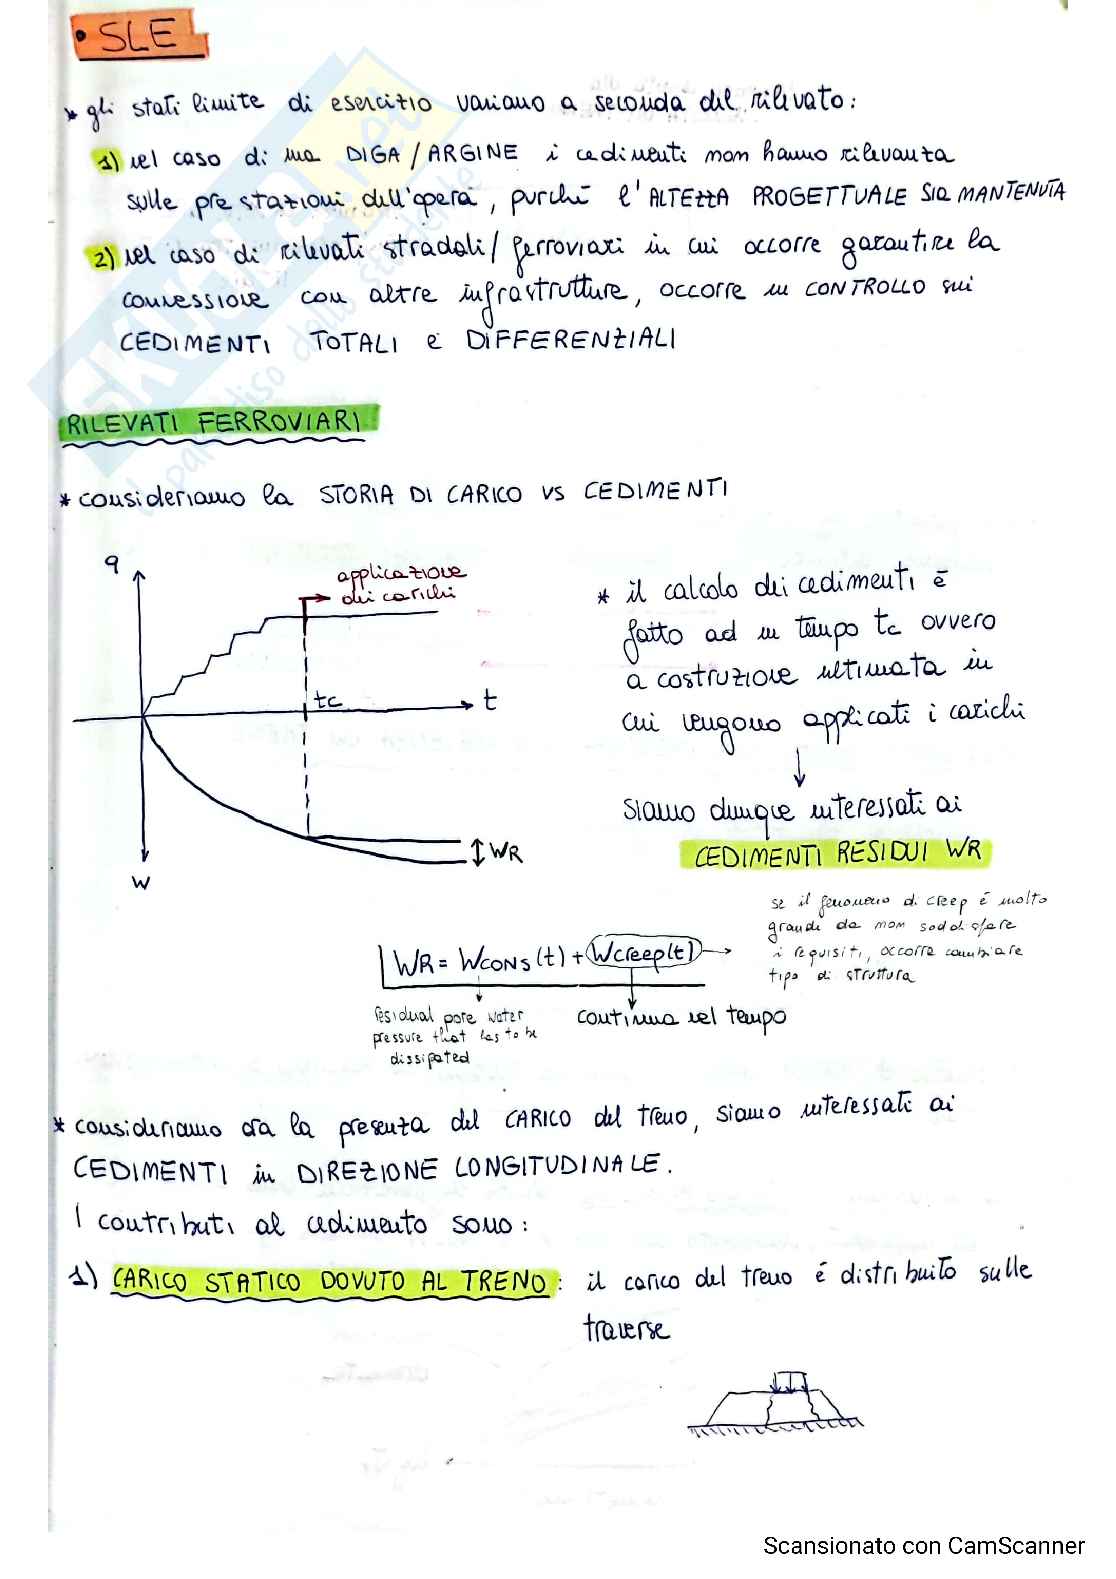 • SLE
* gli stati limite di esercizio variano a seconda del rilevato:
1) nel caso di una DIGA/ARGINE i cedimenti non hanno rilevanza
sulle prestazioni dell'opera, purché l'ALTEZZA PROGETTUALE SIA MANTENUTA
2) nel caso di rilevati stradali/ferroviari in cui occorre garantire la
connessione con altre infrastrutture, occorre un CONTROLLO sui
CEDIMENTI TOTALI e DIFFERENZIALI
RILEVATI FERROVIARI
* consideriamo la STORIA DI CARICO VS CEDIMENTI
q
applicazione
dei carichi
tc
t
W
WR
* il calcolo dei cedimenti è
fatto ad un tempo tc ovvero
a costruzione ultimata in
cui vengono applicati i carichi
↓
siamo dunque interessati ai
CEDIMENTI RESIDUI WR
WR = WCONS(t) + Wcreep(t) →
se il fenomeno di creep è molto
grande da non soddisfare
i requisiti, occorre cambiare
tipo di struttura
residual pore water
pressure that has to be
dissipated
continua nel tempo
* consideriamo ora la presenza del CARICO del treno, siamo interessati ai
CEDIMENTI in DIREZIONE LONGITUDINALE.
I contributi al cedimento sono:
1) CARICO STATICO DOVUTO AL TRENO: il carico del treno è distribuito sulle
traverse
skuola.net
il paradiso dello studente
Scansionato con CamScanner